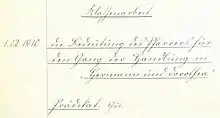 Klassenarbeit
1.12.1910. die Bedeutung des Pfarrers für
den Gang der Handlung in
„Hermann und Dorothea“
Prädikat. Gut.